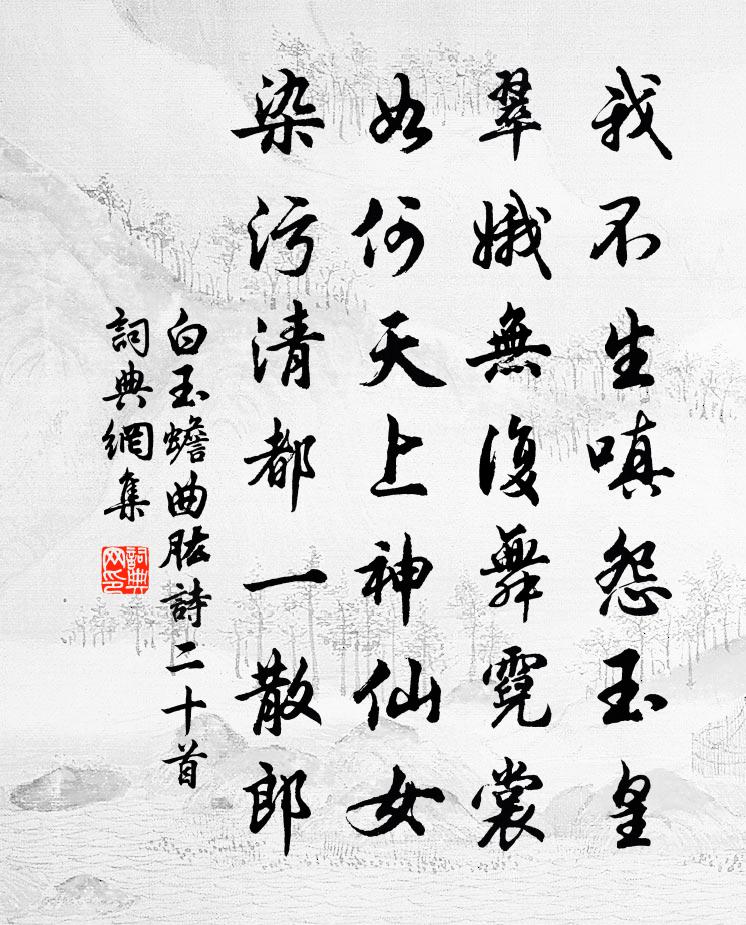 我不生嗔怨玉皇
翠娥無復舞霓裳
如何天上神仙女
染污清都一散郎
白玉蟾曲肱詩二十首
詞典網集
詞典
网印